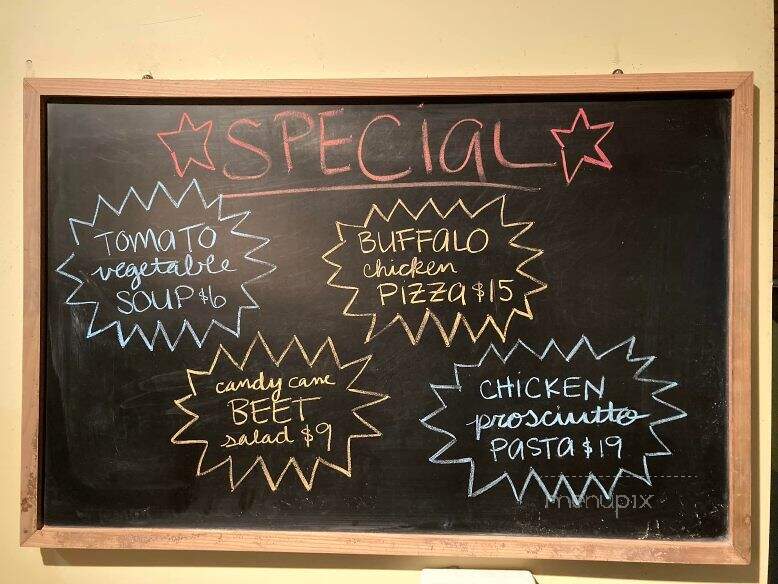 SPECIAL
TOMATO
vegetable
SOUP $6
BUFFALO
chicken
PIZZA $15
candy cane
BEET
salad $9
CHICKEN
prosciutto
PASTA $19
menupix